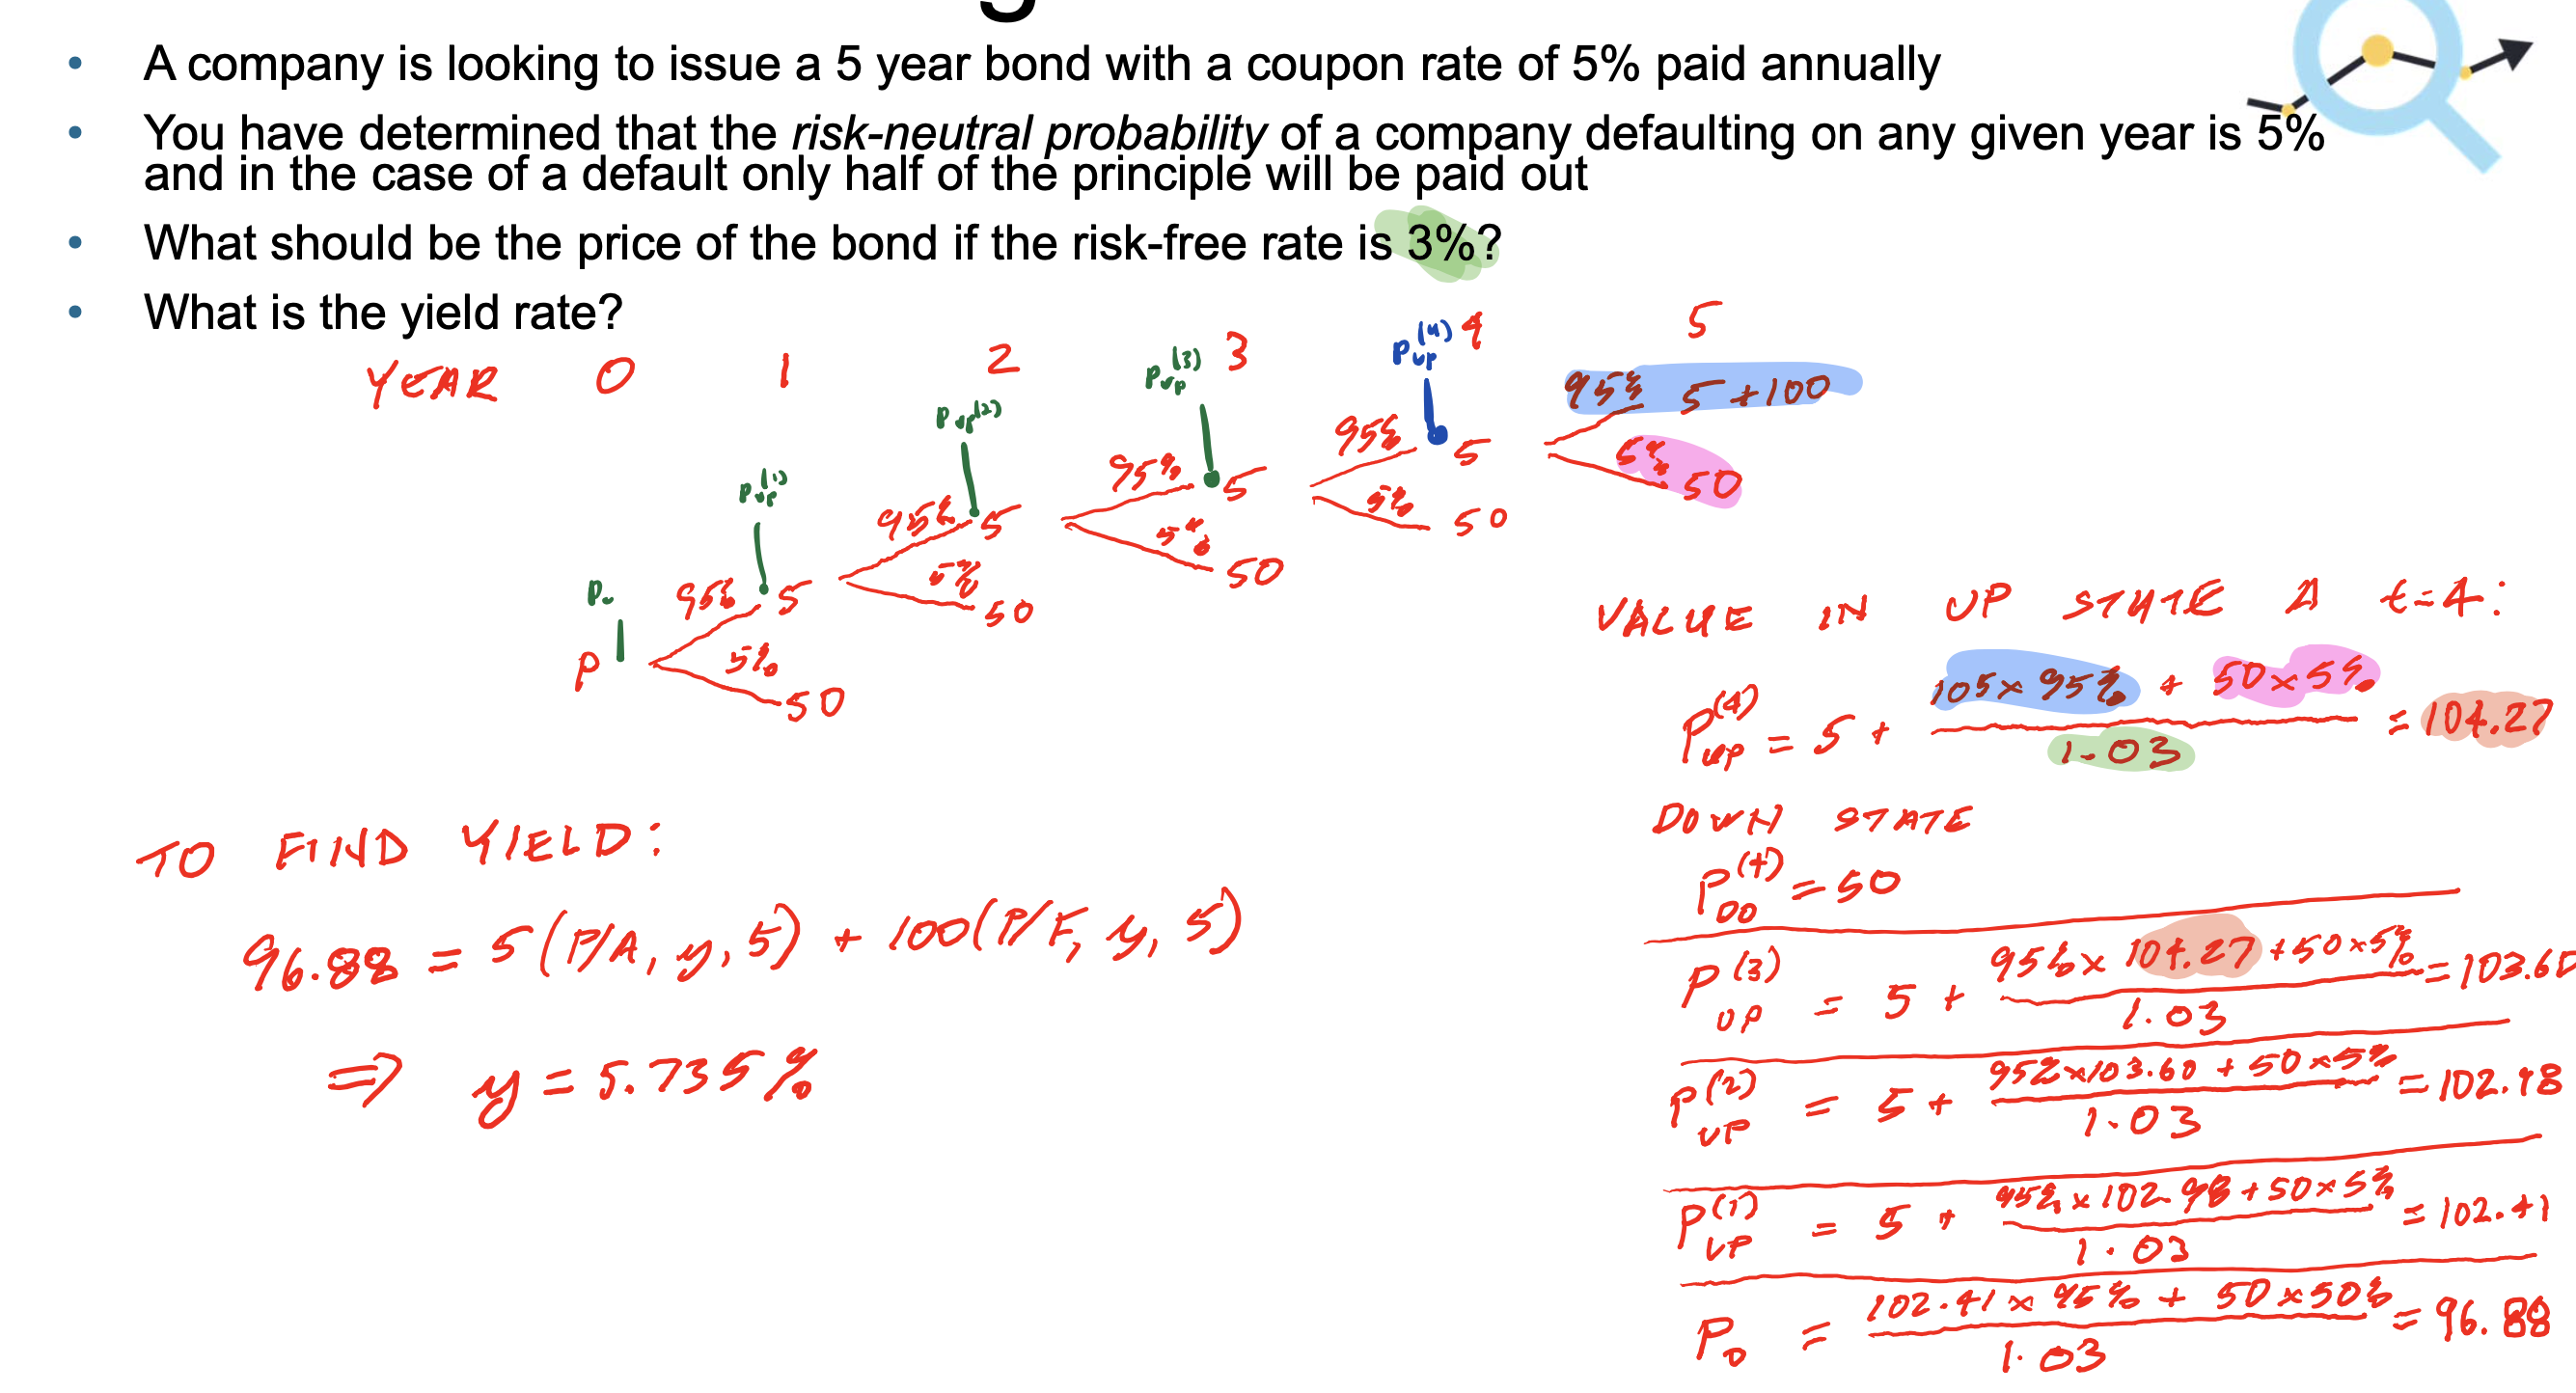 • A company is looking to issue a 5 year bond with a coupon rate of 5% paid annually
• You have determined that the risk-neutral probability of a company defaulting on any given year is 5%
and in the case of a default only half of the principle will be paid out
• What should be the price of the bond if the risk-free rate is 3%?
• What is the yield rate?
YEAR 0 1 2 3 4 5
P 95% 5 5% 50
95% 5 5% 50
95% 5 5% 50
95% 5 5% 50
95% 5+100 5% 50
P₀ P_up^(1) P_up^(2) P_up^(3) P_up^(4)
VALUE IN UP STATE A t=4:
P_up^(4) = 5 + (105 x 95% + 50 x 5%) / 1.03 = 104.27
DOWN STATE
P_DO^(4) = 50
P_UP^(3) = 5 + (95% x 104.27 + 50 x 5%) / 1.03 = 103.60
P_UP^(2) = 5 + (95% x 103.60 + 50 x 5%) / 1.03 = 102.98
P_UP^(1) = 5 + (95% x 102.98 + 50 x 5%) / 1.03 = 102.41
P_0 = (102.41 x 95% + 50 x 50%) / 1.03 = 96.88
TO FIND YIELD:
96.88 = 5(P/A, y, 5) + 100(P/F, y, 5)
⇒ y = 5.735%